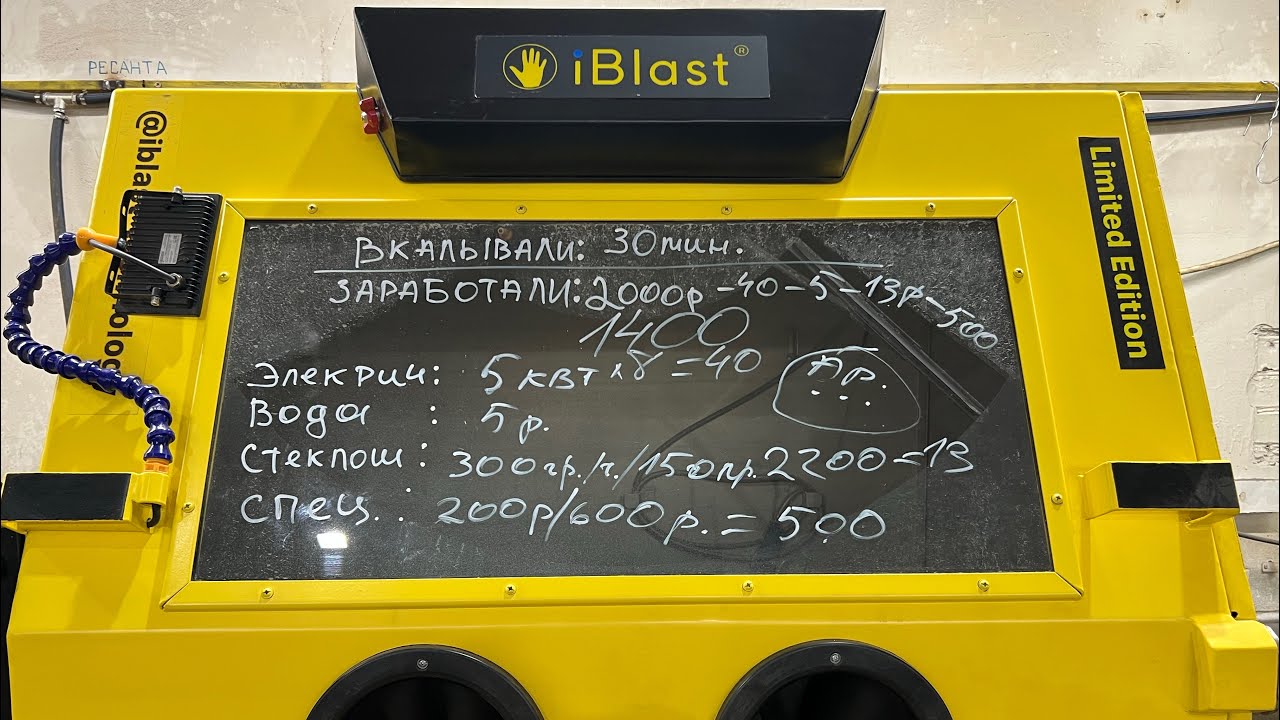 РЕСАНТА
iBlast®
@ibla
olog
Limited Edition
ВКАЛЫВАЛИ: 30 мин.
ЗАРАБОТАЛИ: 2000р - 40 - 5 - 13р - 500
1400
Элекрич: 5 квт х 8 = 40
Ар. ...
Вода : 5 р.
Стеклош: 300 гр./ч./150 гр. 2200 = 13
Спец. : 200р/600 р. = 500